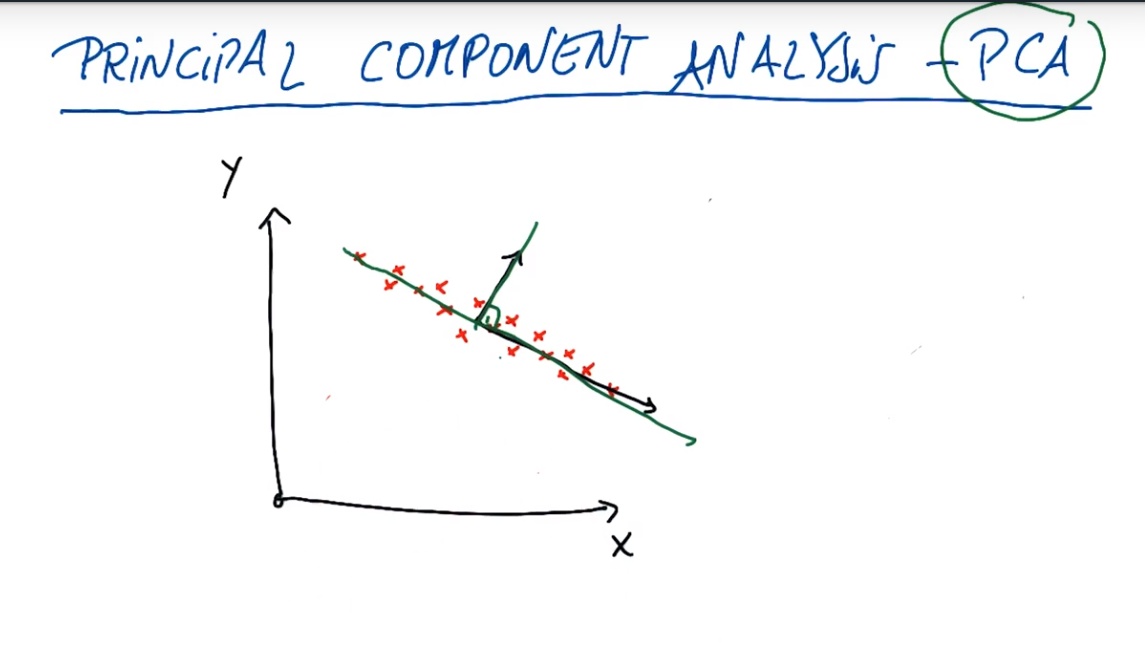 PRINCIPAL COMPONENT ANALYSIS - PCA
Y
X